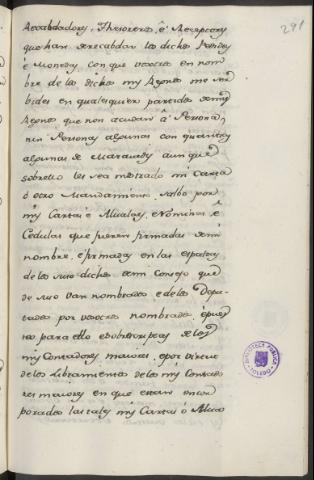 291
Recabdadores, Thesoreros, é Receptores
que han de recabdar los dichos Pedidos
é Monedas, con que vosotros en nom
bre de los dichos mis Reynos me ser
bides en qualesquier partidas de mis
Reynos que non acudan á Persona,
nin Personas algunas con quantias
algunas de Maravedis aunque
sobrello les sea mostrado mi Carta
ó otro Mandamiento, salbo por
mis Cartas é Alvalaes, é Nominas é
Cedulas que fueren firmadas de mi
nombre, é firmadas en las espaldas
de los suso dichos de mi Consejo que
de suso van nombrados é de los Dipu
tados por vosotros nombrados, é pues
tos para ello é sobre escriptas de los
mis Contadores maiores, é por virtud
de los Libramientos de los mis Contado
res maiores en que esten encor
porados las tales mis Cartas ó Alvala
BIBLIOTECA PUBLICA
TOLEDO